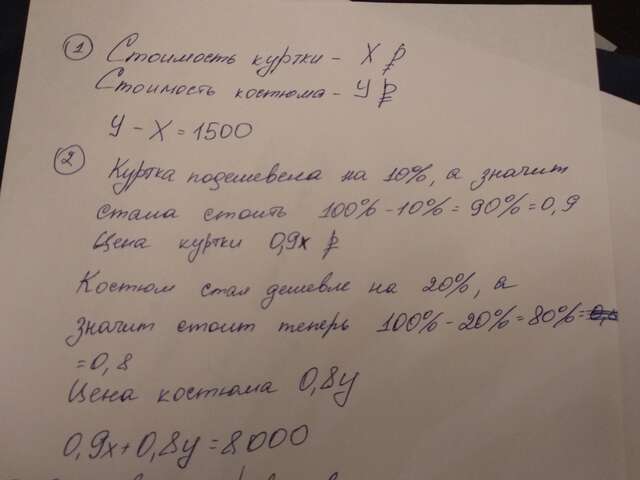 1 Стоимость куртки - X ₽
Стоимость костюма - У ₽
У - X = 1500
2 Куртка подешевела на 10%, а значит
стала стоить 100% - 10% = 90% = 0,9
Цена куртки 0,9x ₽
Костюм стал дешевле на 20%, а
значит стоит теперь 100% - 20% = 80% =
= 0,8
Цена костюма 0,8у
0,9x + 0,8у = 8000